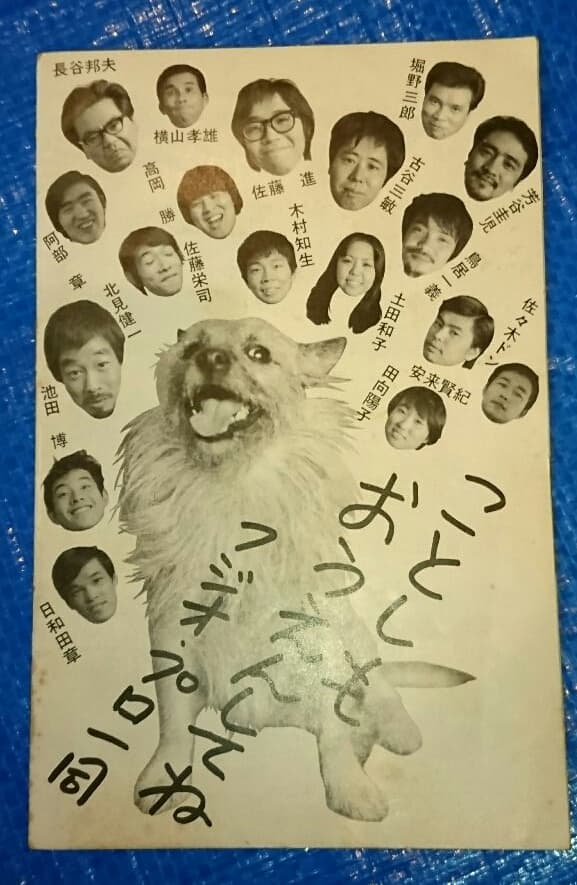 長谷邦夫
横山孝雄
堀野三郎
高岡 勝
佐藤 進
古谷三敏
芳谷圭児
阿部 章
北見健一
佐藤栄司
木村知生
土田和子
鳥居一義
佐々木ドン
安来賢紀
田向陽子
池田 博
日和田章
ことしも
おうえんしてね
フジオ・プロ一同